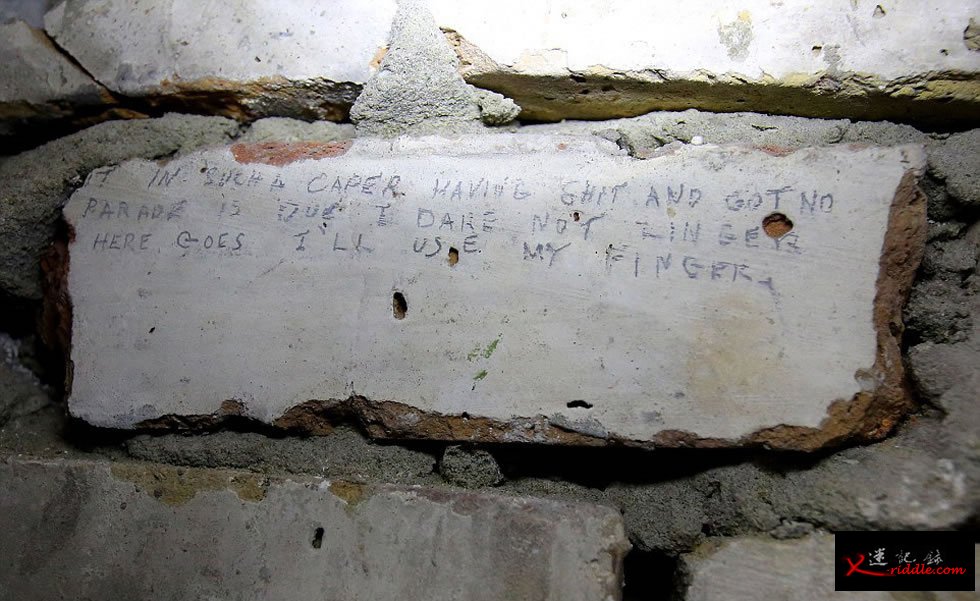 IT IN SUCH A CAPER HAVING SHIT AND GOT NO
PARADE IS DUE I DARE NOT LINGER
HERE GOES I'LL USE MY FINGER
迷記錄
X-riddle.com